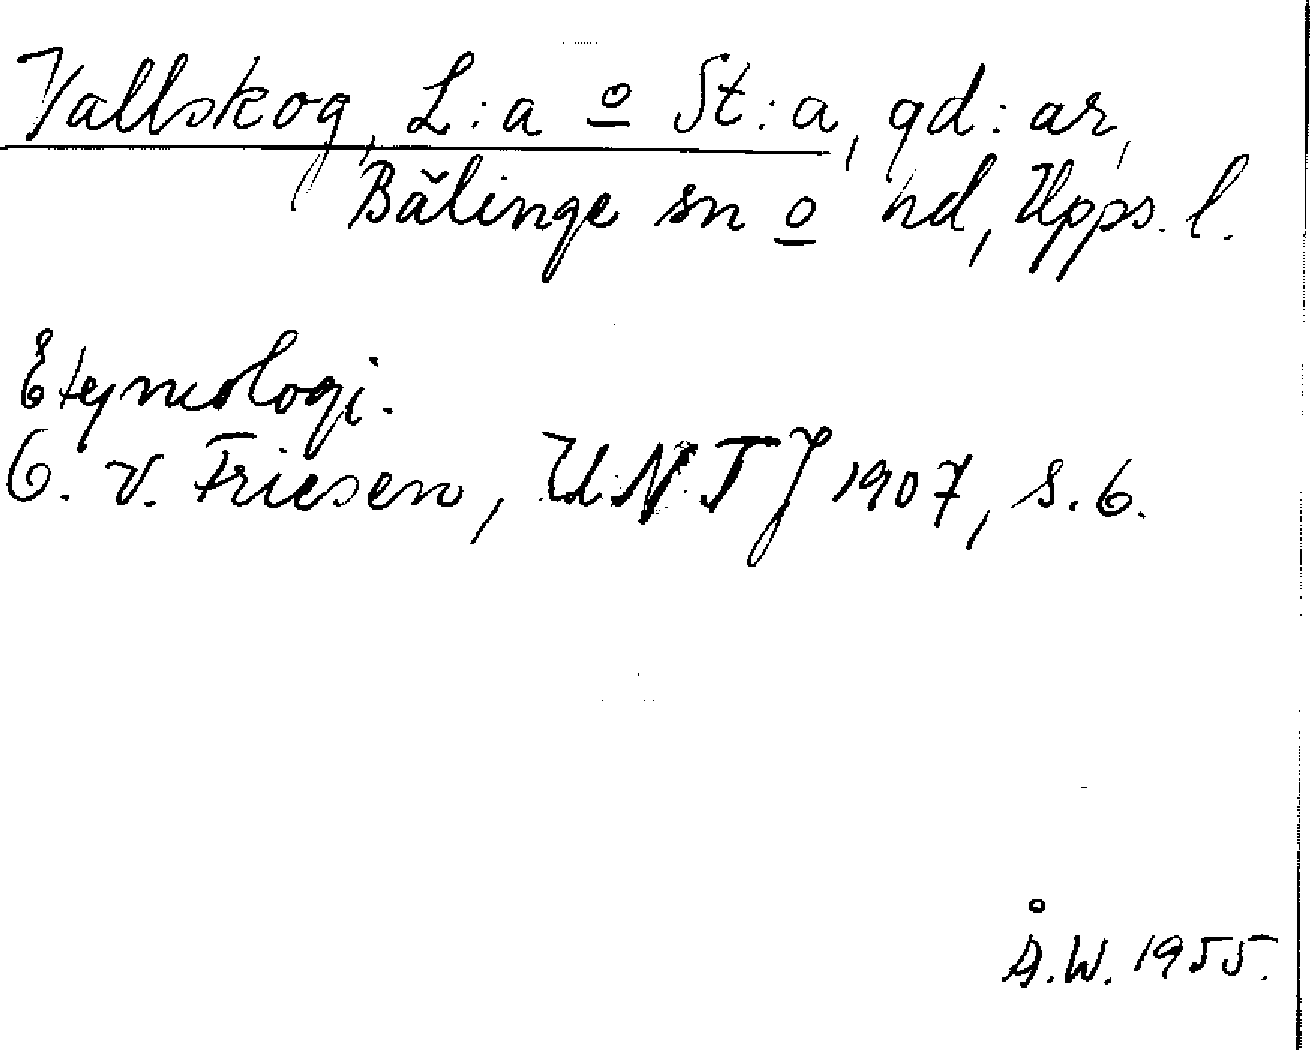 Vallskog, L:a o St:a, gd:ar,
Bälinge sn o hd, Upps. l.
Etymologi.
O. v. Friesen, UNTJ 1907, s. 6.
Å.W. 1955.